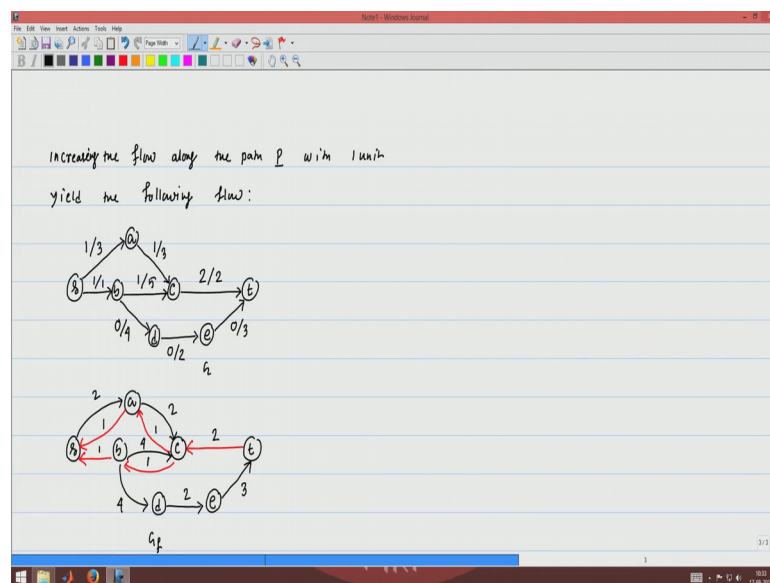 Note1 - Windows Journal
File Edit View Insert Actions Tools Help
Page Width
B I
Increasing the flow along the path P with 1 unit
yield the following flow:
a
1/3 1/3
s 1/1 b 1/5 c 2/2 t
0/4 d 0/2 e 0/3
G
2 a 2
1 1
s 1 b 4 c 2 t
1
4 d 2 e 3
Gf
3/3
1
10:33